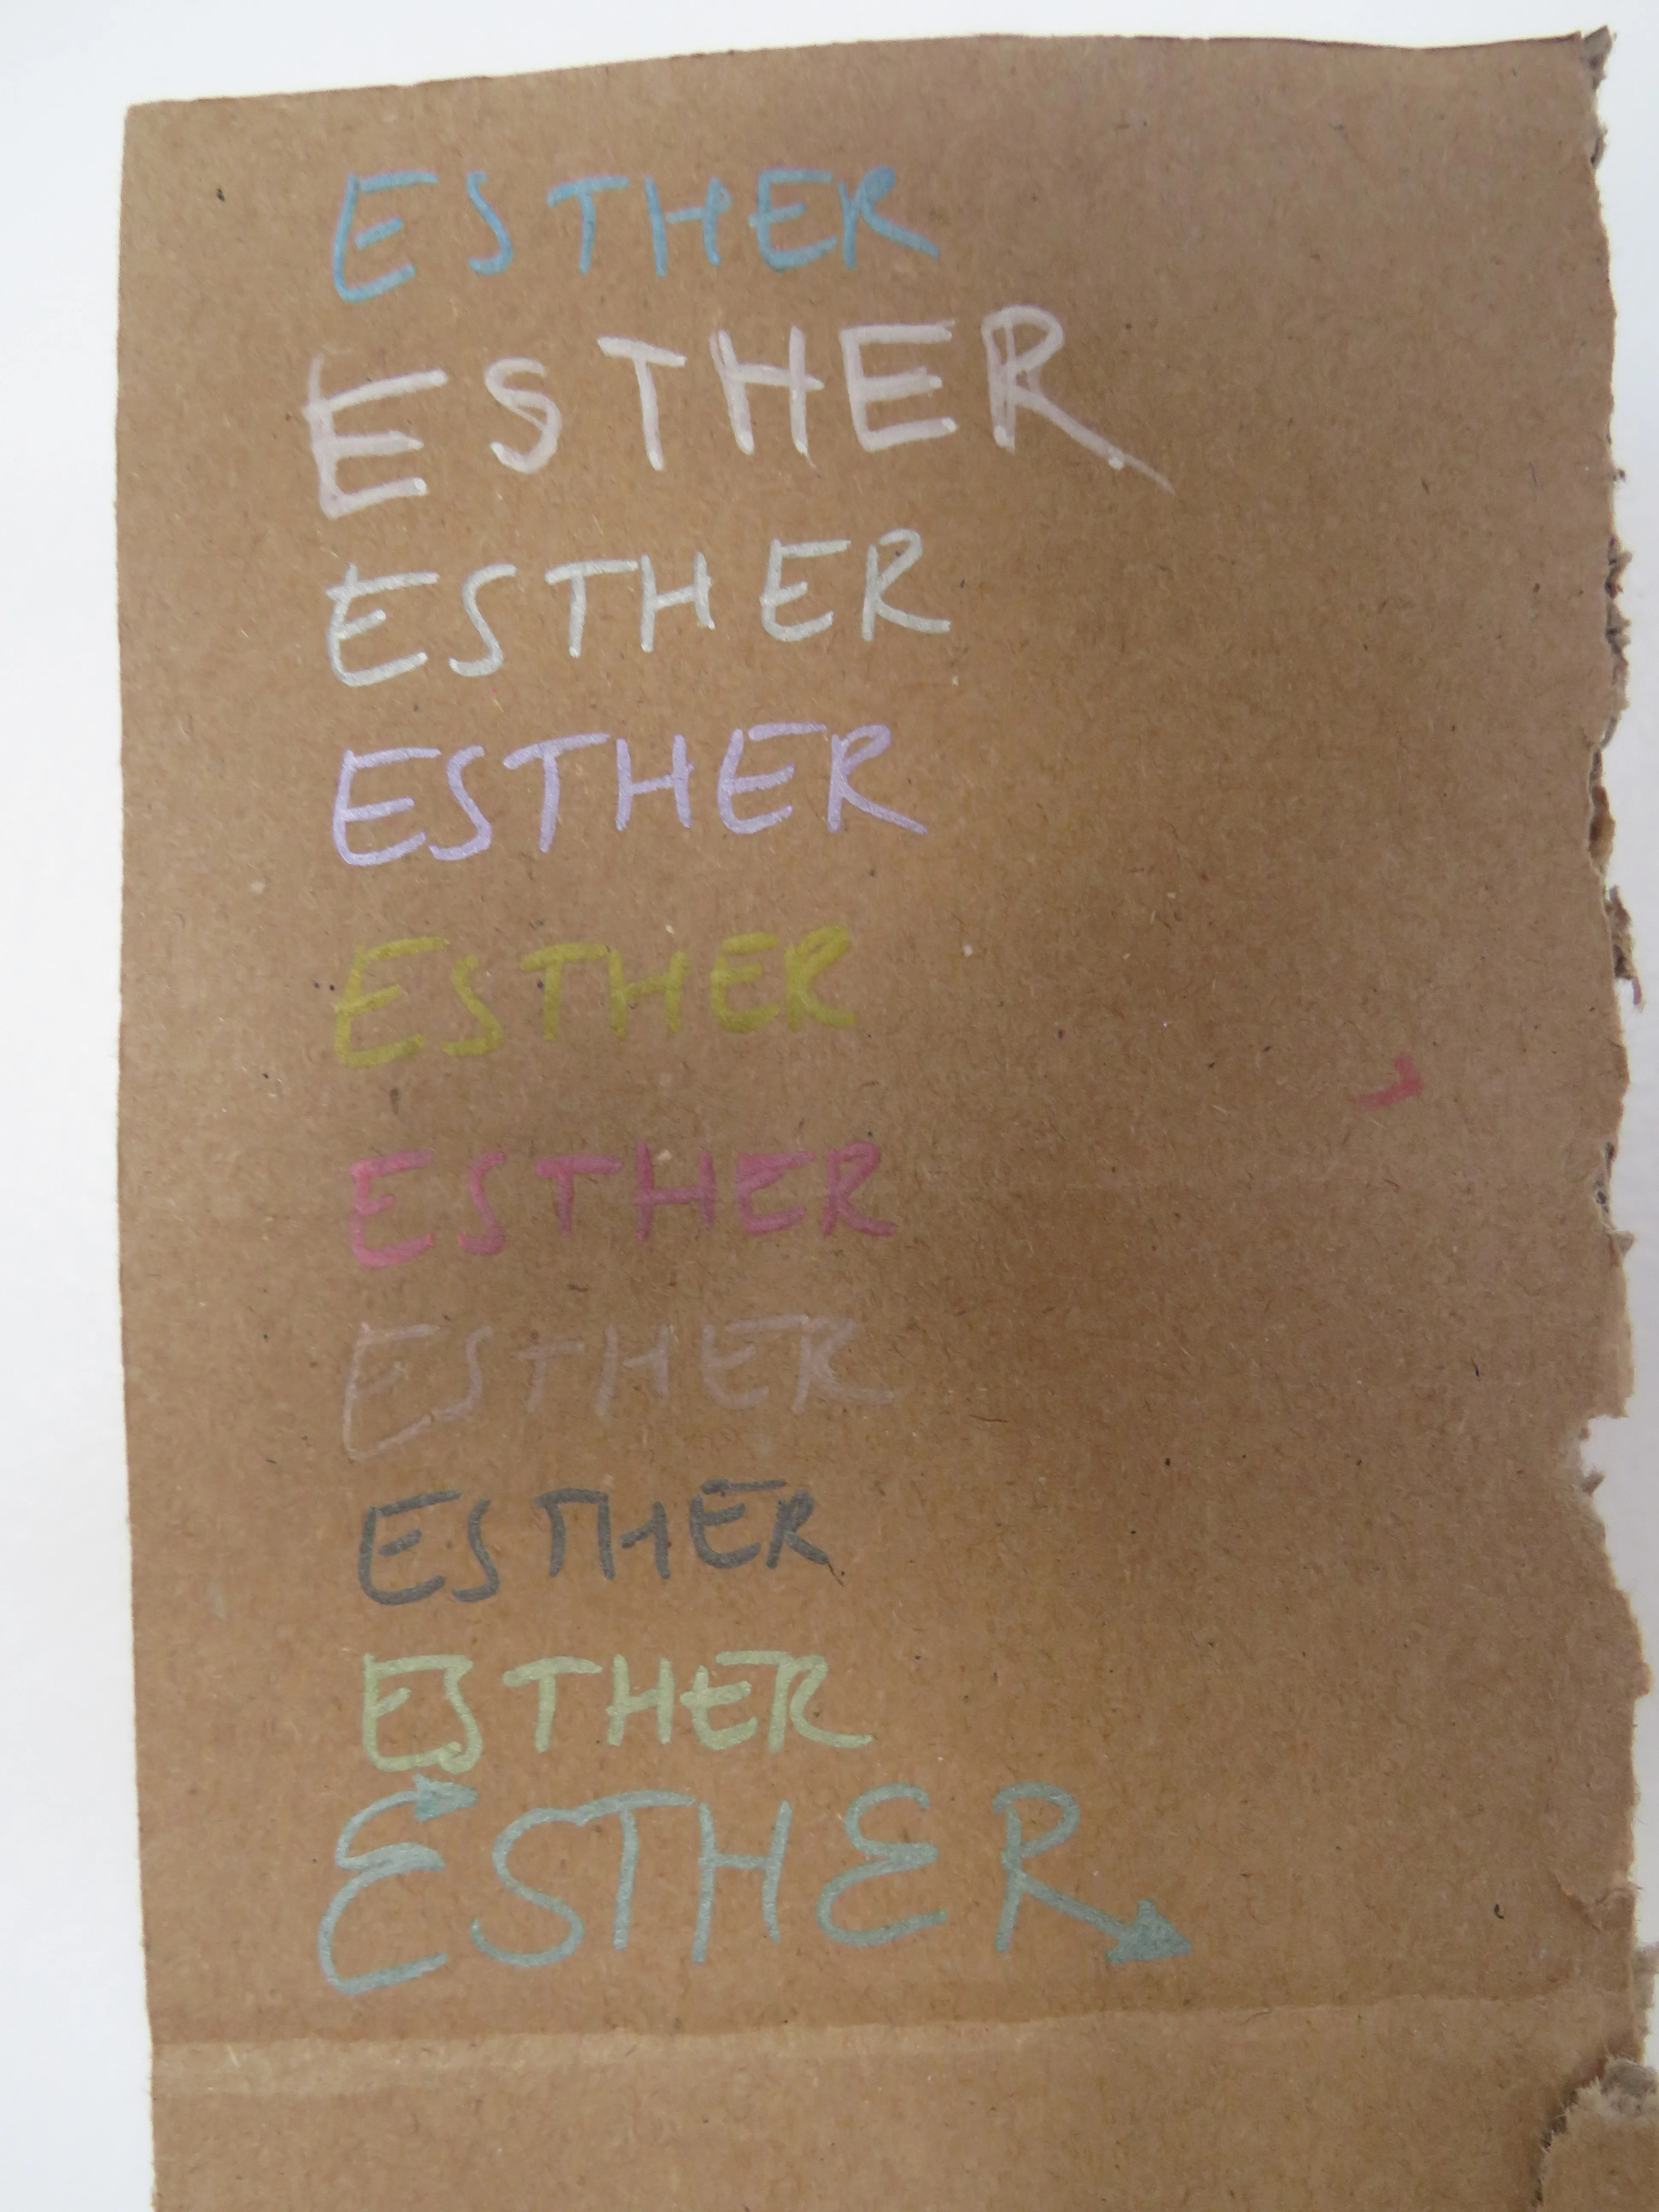 ESTHER
ESTHER
ESTHER
ESTHER
ESTHER
ESTHER
ESTHER
ESTHER
ESTHER
ESTHER